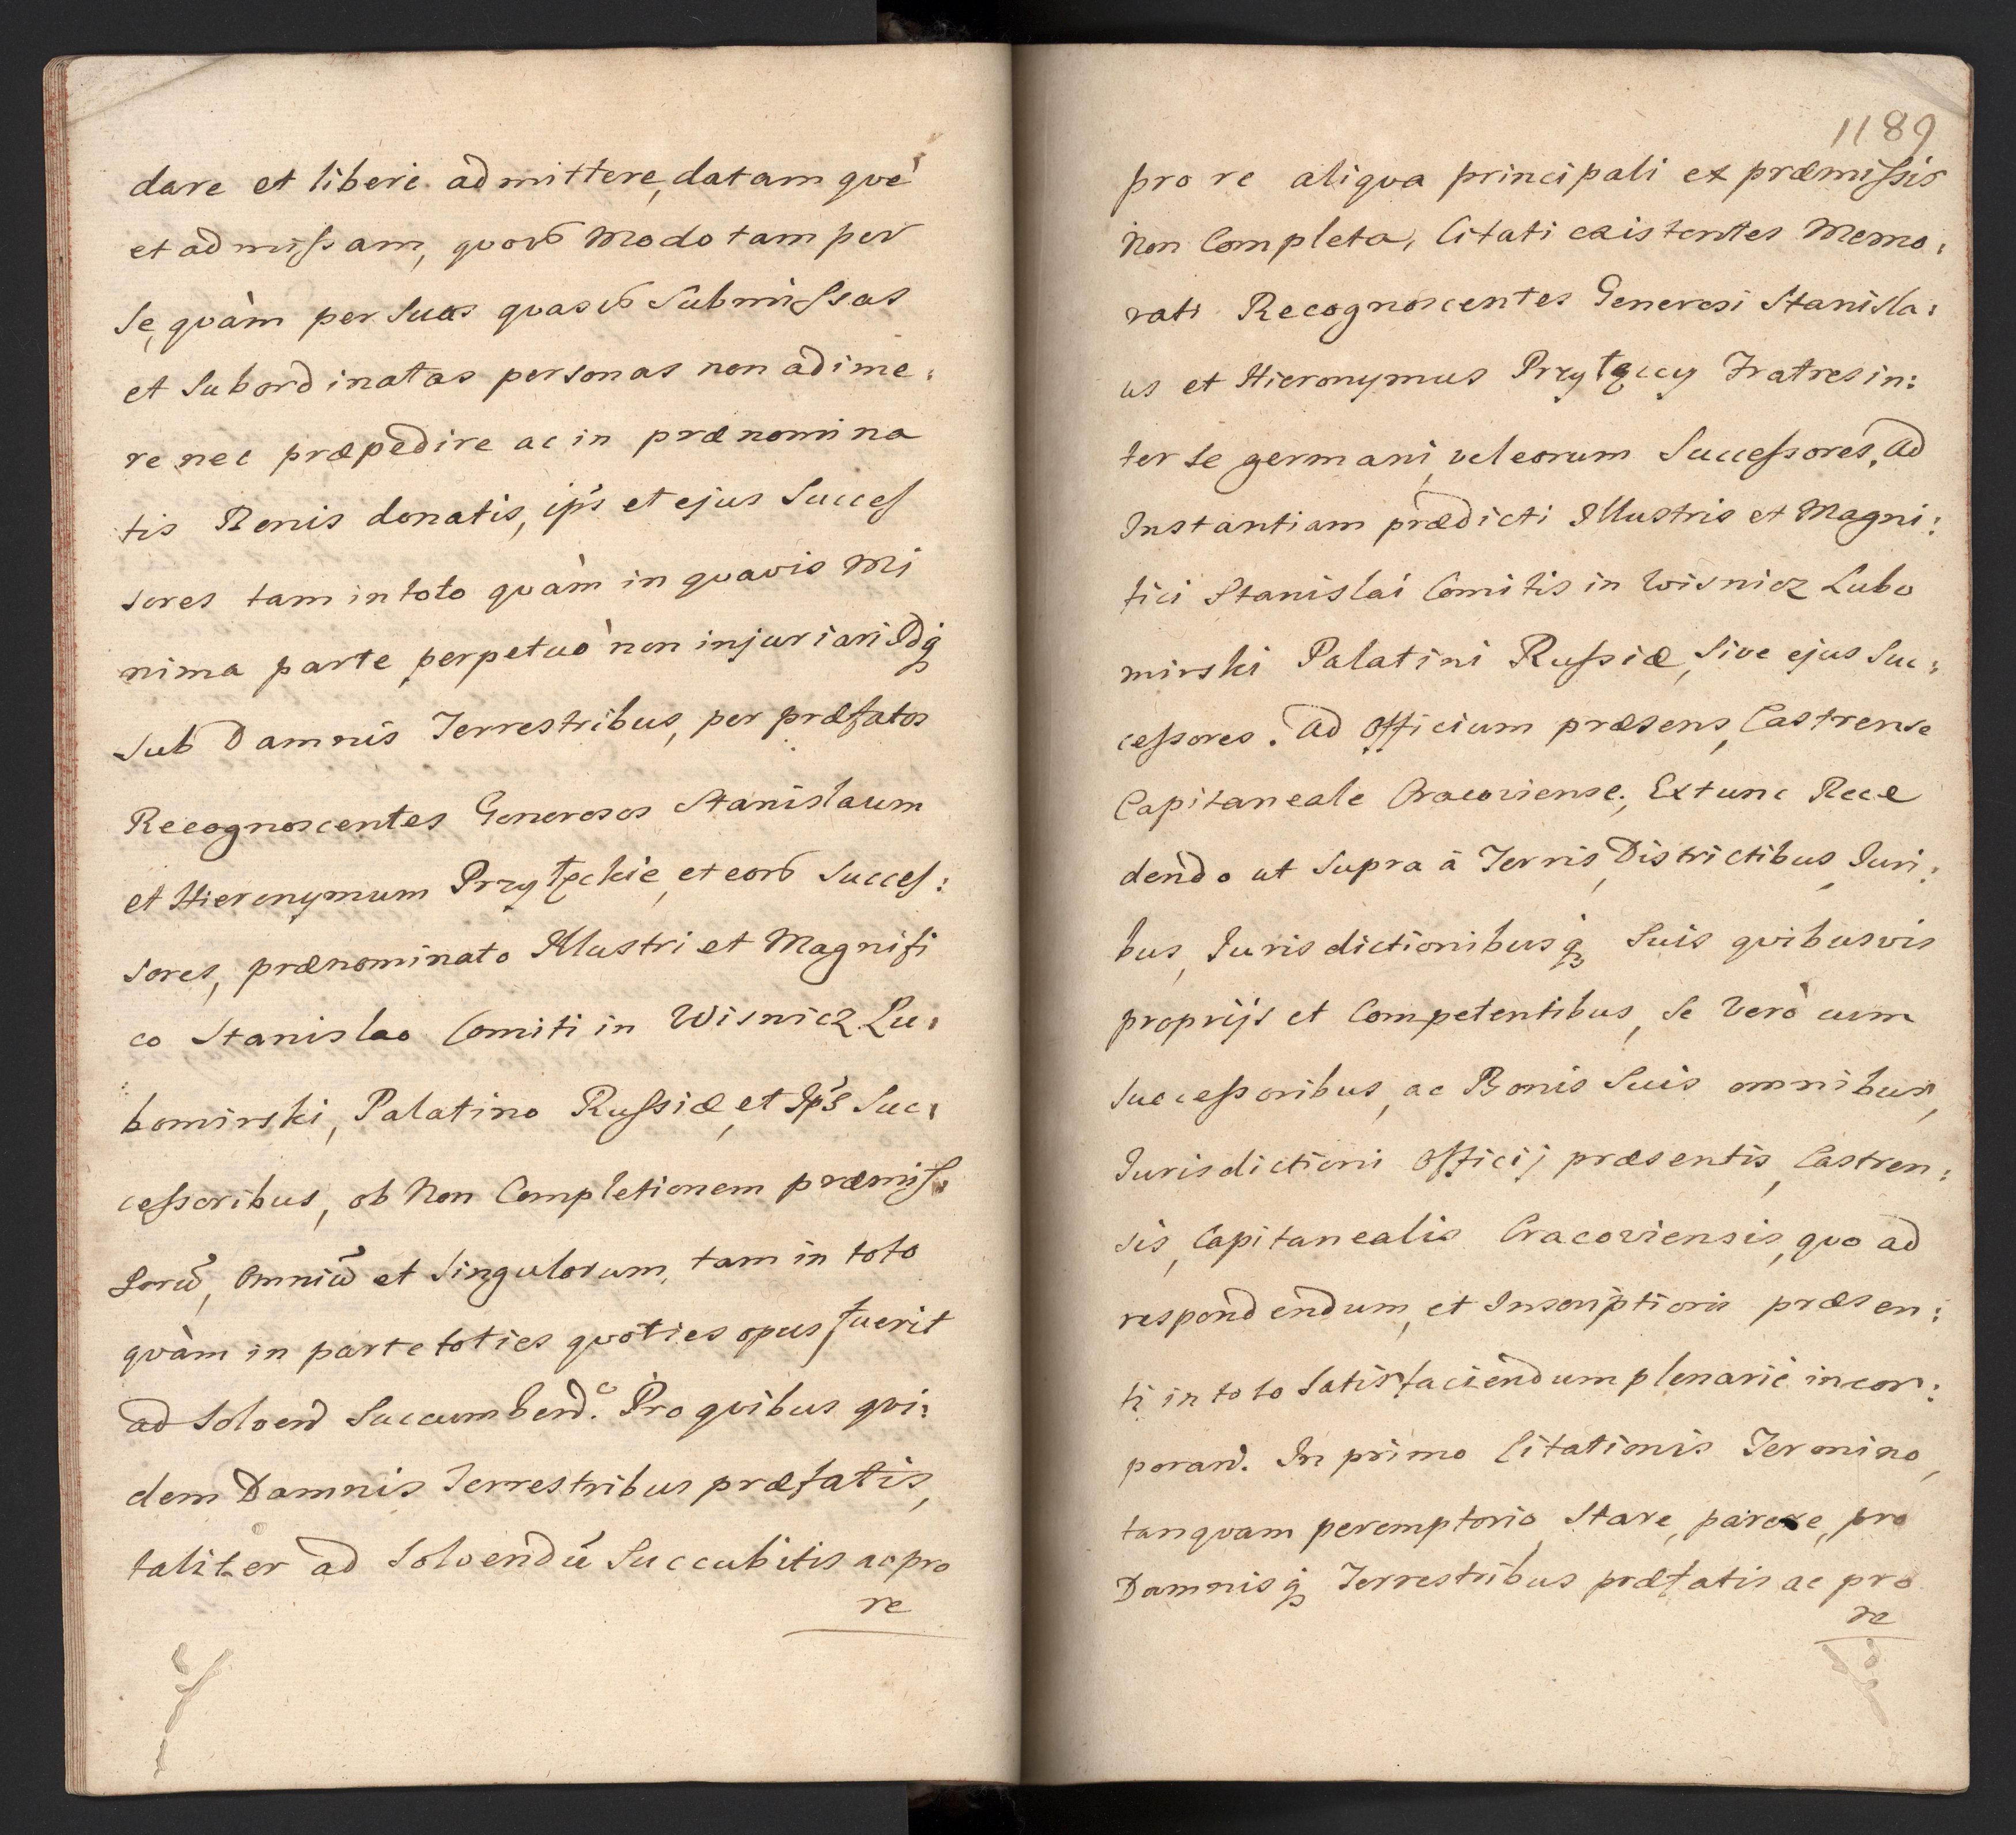 dare et liberè admittere, datam què
et admissam, quovis Modo tam per
se, quàm per suas quasvis Submissas
et Subordinatas personas non adime:
re nec præpedire ac in prænomina
tis Bonis donatis, ips et ejus Succes
sores tam in toto quàm in quavis Mi
nima parte perpetuò non injuriari Idq
sub Damnis Terrestribus, per præfatos
Recognoscentes Generosos Stanislaum
et Hieronymum Przyłęckie, et eorũ Succes:
sores, prænominato Illustri et Magnifi
co Stanislao Comiti in Wisnicz Lu:
bomirski, Palatino Russiæ, et Ips Suc:
cessoribus, ob Non Completionem præmis:
sorũ, Omniũ et Singulorum, tam in toto
quàm in parte toties quoties opus fuerit
ad Solvend Succumbend. Pro quibus qui:
dem Damnis Terrestribus præfatis,
taliter ad Solvendũ Succubitis ac pro
re
1189
pro re aliqua principali ex præmissis
Non Completa, Citati existentes Memo:
rati Recognoscentes Generosi Stanisla:
us et Hieronymus Przyłęccy Fratres in:
ter se germani, vel eorum Successores, ad
Instantiam prædicti Illustris et Magni:
fici Stanislai Comitis in Wisnicz Lubo
mirski Palatini Russiæ, Sive ejus Suc:
cessores. ad Officium præsens, Castrense
Capitaneale Cracoviense, Extunc Rece
dendo ut Supra à Terris, Districtibus, Juri:
bus, Jurisdictionibusq Suis quibusvis
proprijs et Competentibus, se verò cum
Successoribus, ac Bonis Suis omnibus,
Jurisdictioni Officij præsentis, Castren:
sis, Capitanealis Cracoviensis, quo ad
respondendum, et Inscriptioni præsen:
ti in toto Satisfaciendum plenariè incor:
porand. In primo Citationis Termino,
tanquam peremptorio Stare, parere, pro
Damnisq Terrestribus præfatis ac pro
re